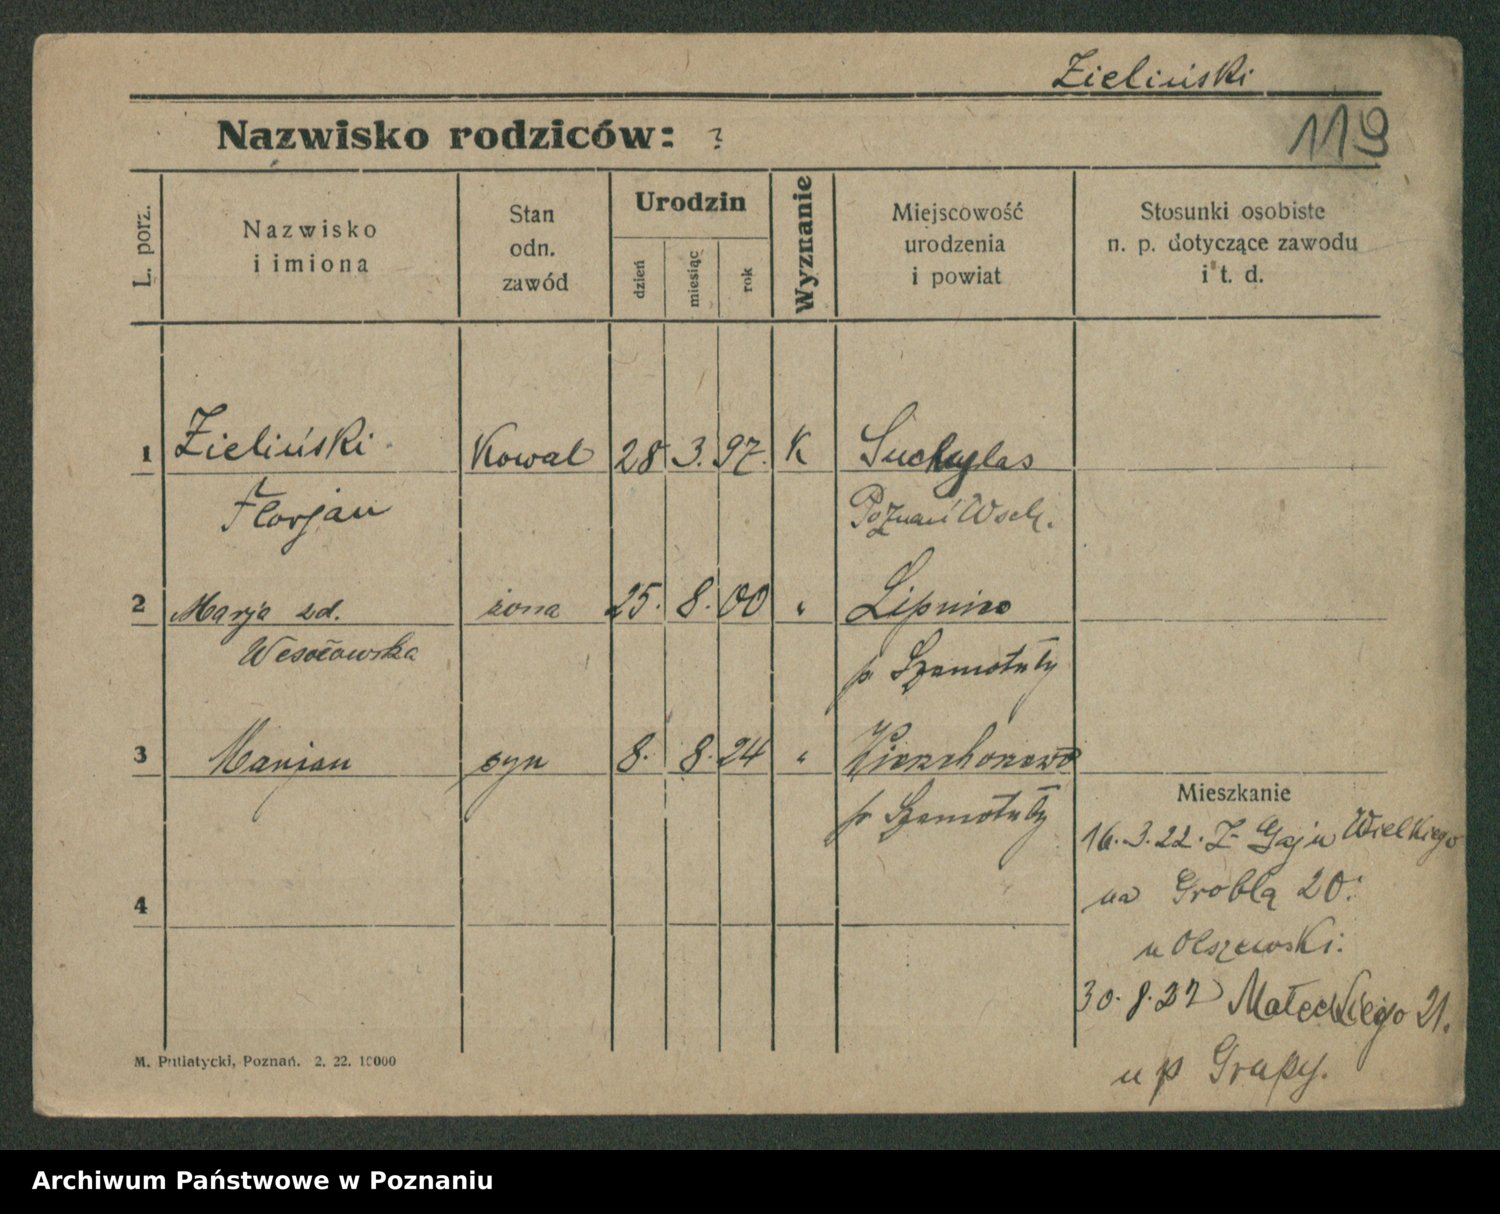 Zieliński
Nazwisko rodziców: ?
119
L. porz.
Nazwisko
i imiona
Stan
odn.
zawód
Urodzin
dzień
miesiąc
rok
Wyznanie
Miejscowość
urodzenia
i powiat
Stosunki osobiste
n. p. dotyczące zawodu
i t. d.
1 Zieliński Kowal 28 3. 97. K Suchylas
Florjan Poznań Wsch.
2 Marja zd. żona 25. 8. 00 " Lipnica
Wesołowska p Szamotuły
3 Marjan syn 8. 8. 24 "
p Szamotuły
4
Mieszkanie
16. 3. 22. Z Gaju Wielkiego
na Groblą 20.
u Olszewski.
30. 8. Małeckiego 21.
u p Grapy.
M. Putiatycki, Poznań. 2. 22. 10000
Archiwum Państwowe w Poznaniu